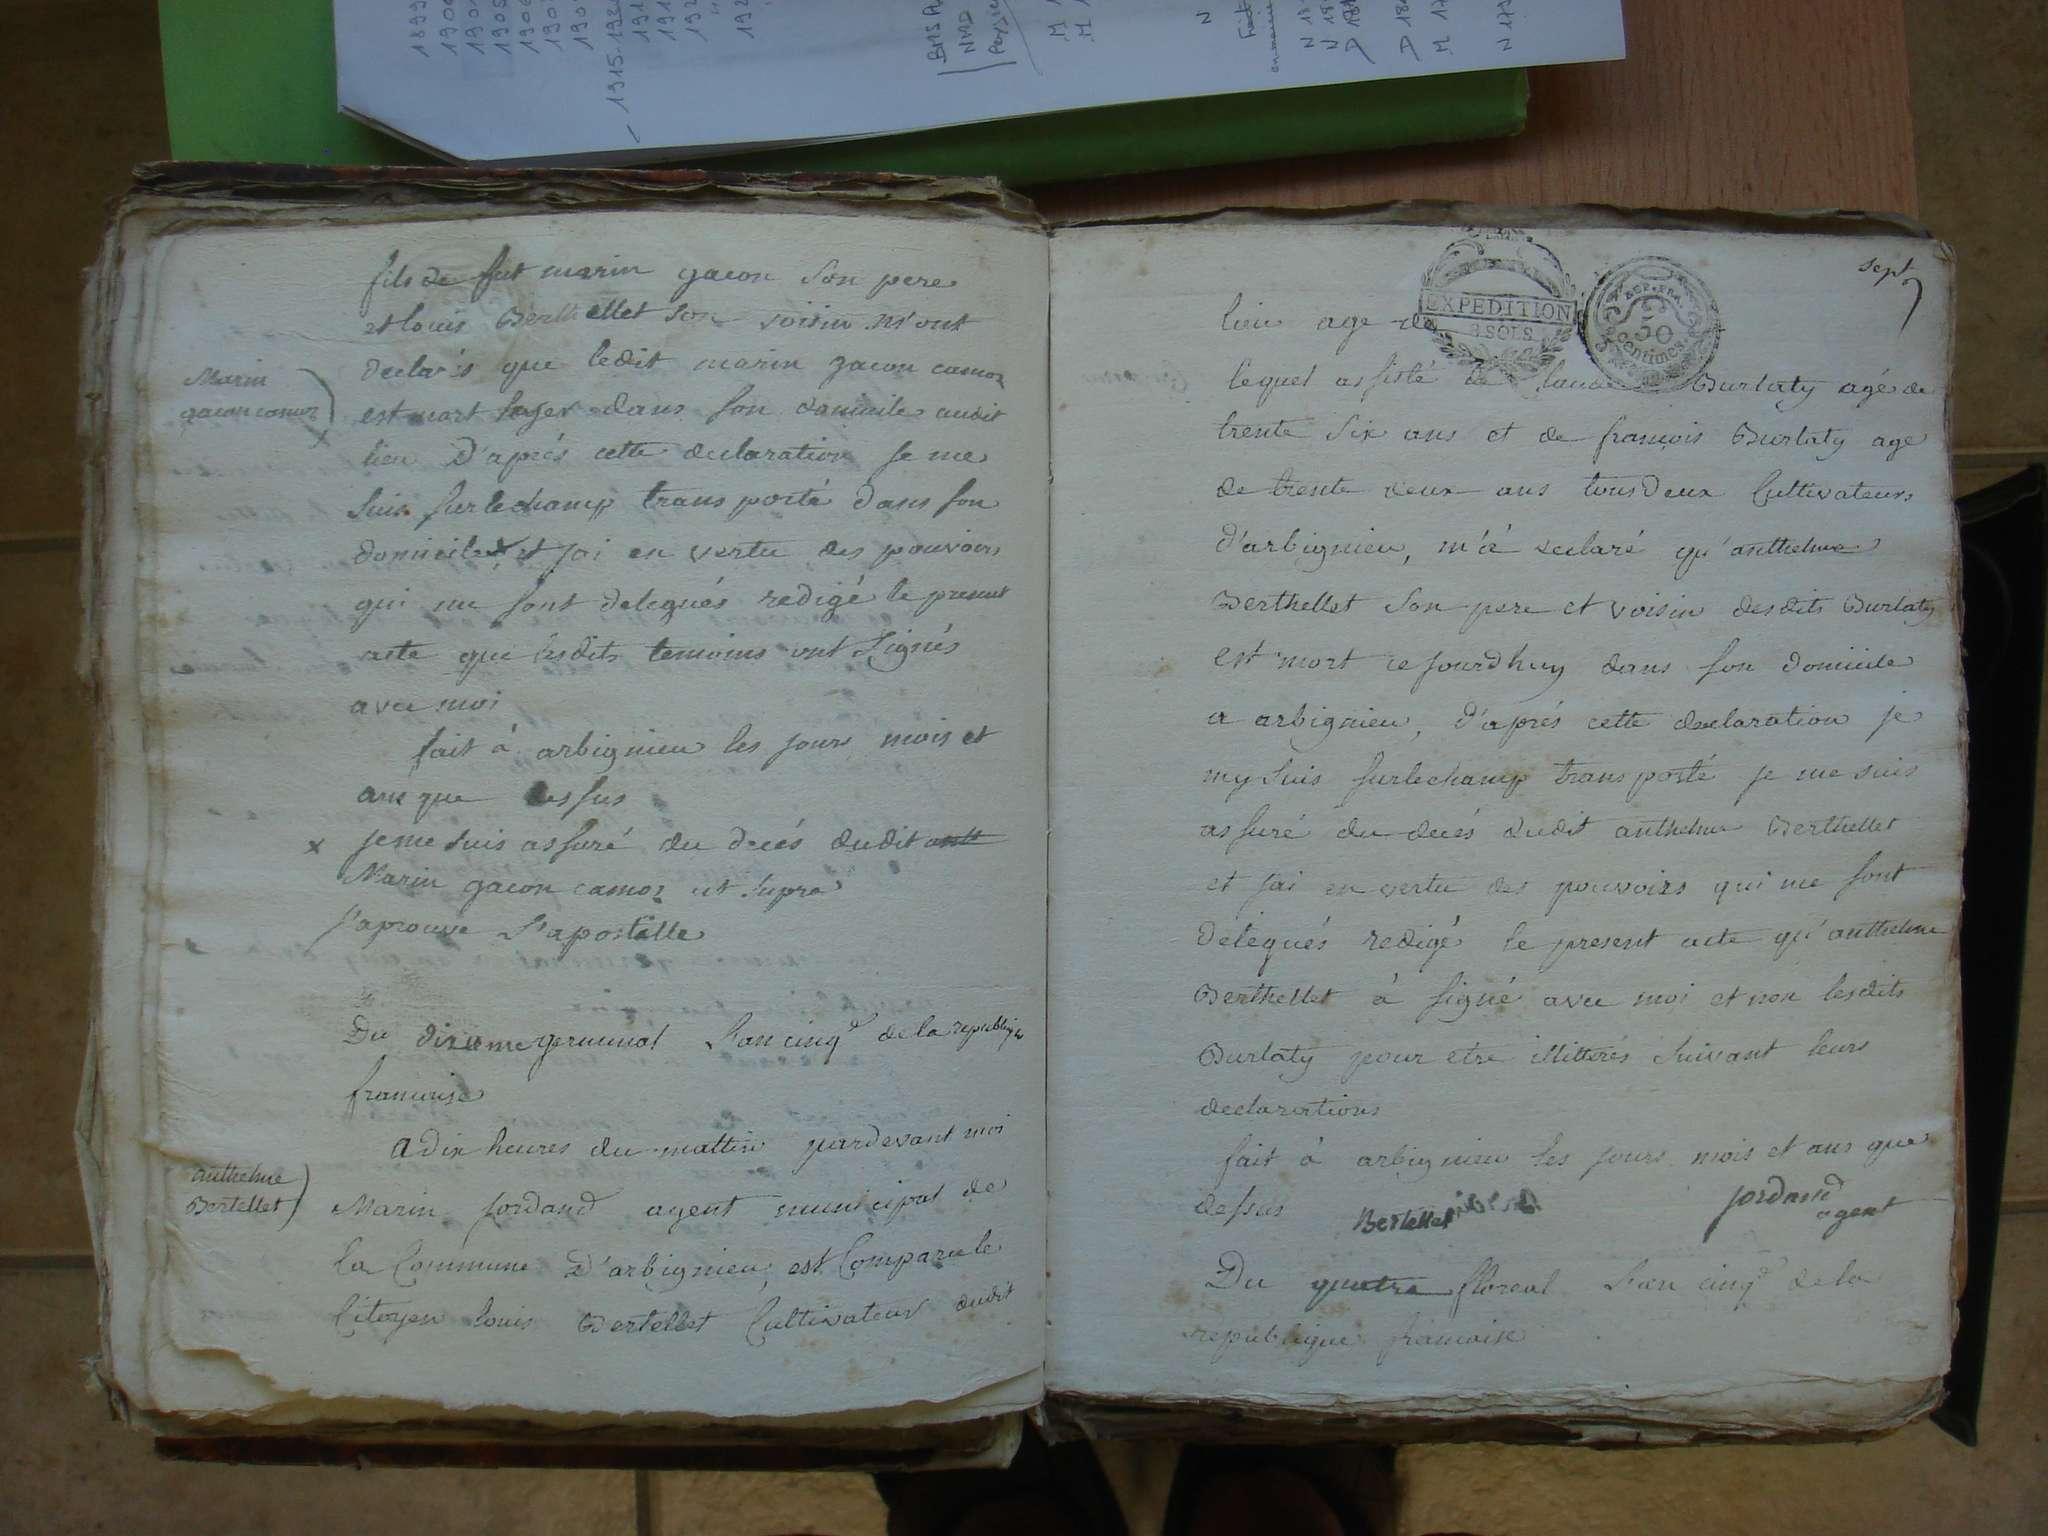 1899
1906
1915-1920
BMS
NMD
N
M
fils de fut marin gacon son pere
et louis Berthellet son voisin m'ont
declarés que ledit marin gacon camoz
est mort hyer dans son domicile audit
lieu D'aprés cette declaration je me
suis surlechamp transporté dans son
domicile x et jai en vertu des pouvoirs
qui me sont delegués redigé le present
acte que lesdits temoins ont signés
avec moi
fait à arbignieu les jours mois et
ans que dessus
x je me suis assuré du decés dudit anth
Marin gacon camoz ut supra
j'aprouve l'apostille
Marin
gacon camoz
x
Du dixieme germinal l'an cinq.e de la republique
francoise
a dix heures du mattin pardevant moi
Marin jordand agent municipal de
la Commune D'arbignieu, est Comparu le
Citoyen louis Bertellet Cultivateur dudit
anthelme
Bertellet
sept
7
EXPEDITION
3 SOLS
REP. FRA.
50
centimes
lieu agé de
lequel assisté de Burlaty agé de
trente six ans et de francois Burlaty age
de trente deux ans tous deux Cultivateurs
d'arbignieu, m'a declaré qu'anthelme
Berthellet son pere et voisin desdits Burlaty
est mort ce jourdhuy dans son domicile
a arbignieu, d'aprés cette declaration je
my suis surlechamp transporté je me suis
assuré du decés dudit anthelme Berthellet
et jai en vertu des pouvoirs qui me sont
delegués redigé le present acte qu'anthelme
Berthellet à signé avec moi et non lesdits
Burlaty pour etre illitterés suivant leurs
declarations
fait à arbignieu les jours mois et ans que
dessus Bertellet jordand
agent
Du quatre floreal l'an cinq.e de la
republique francoise